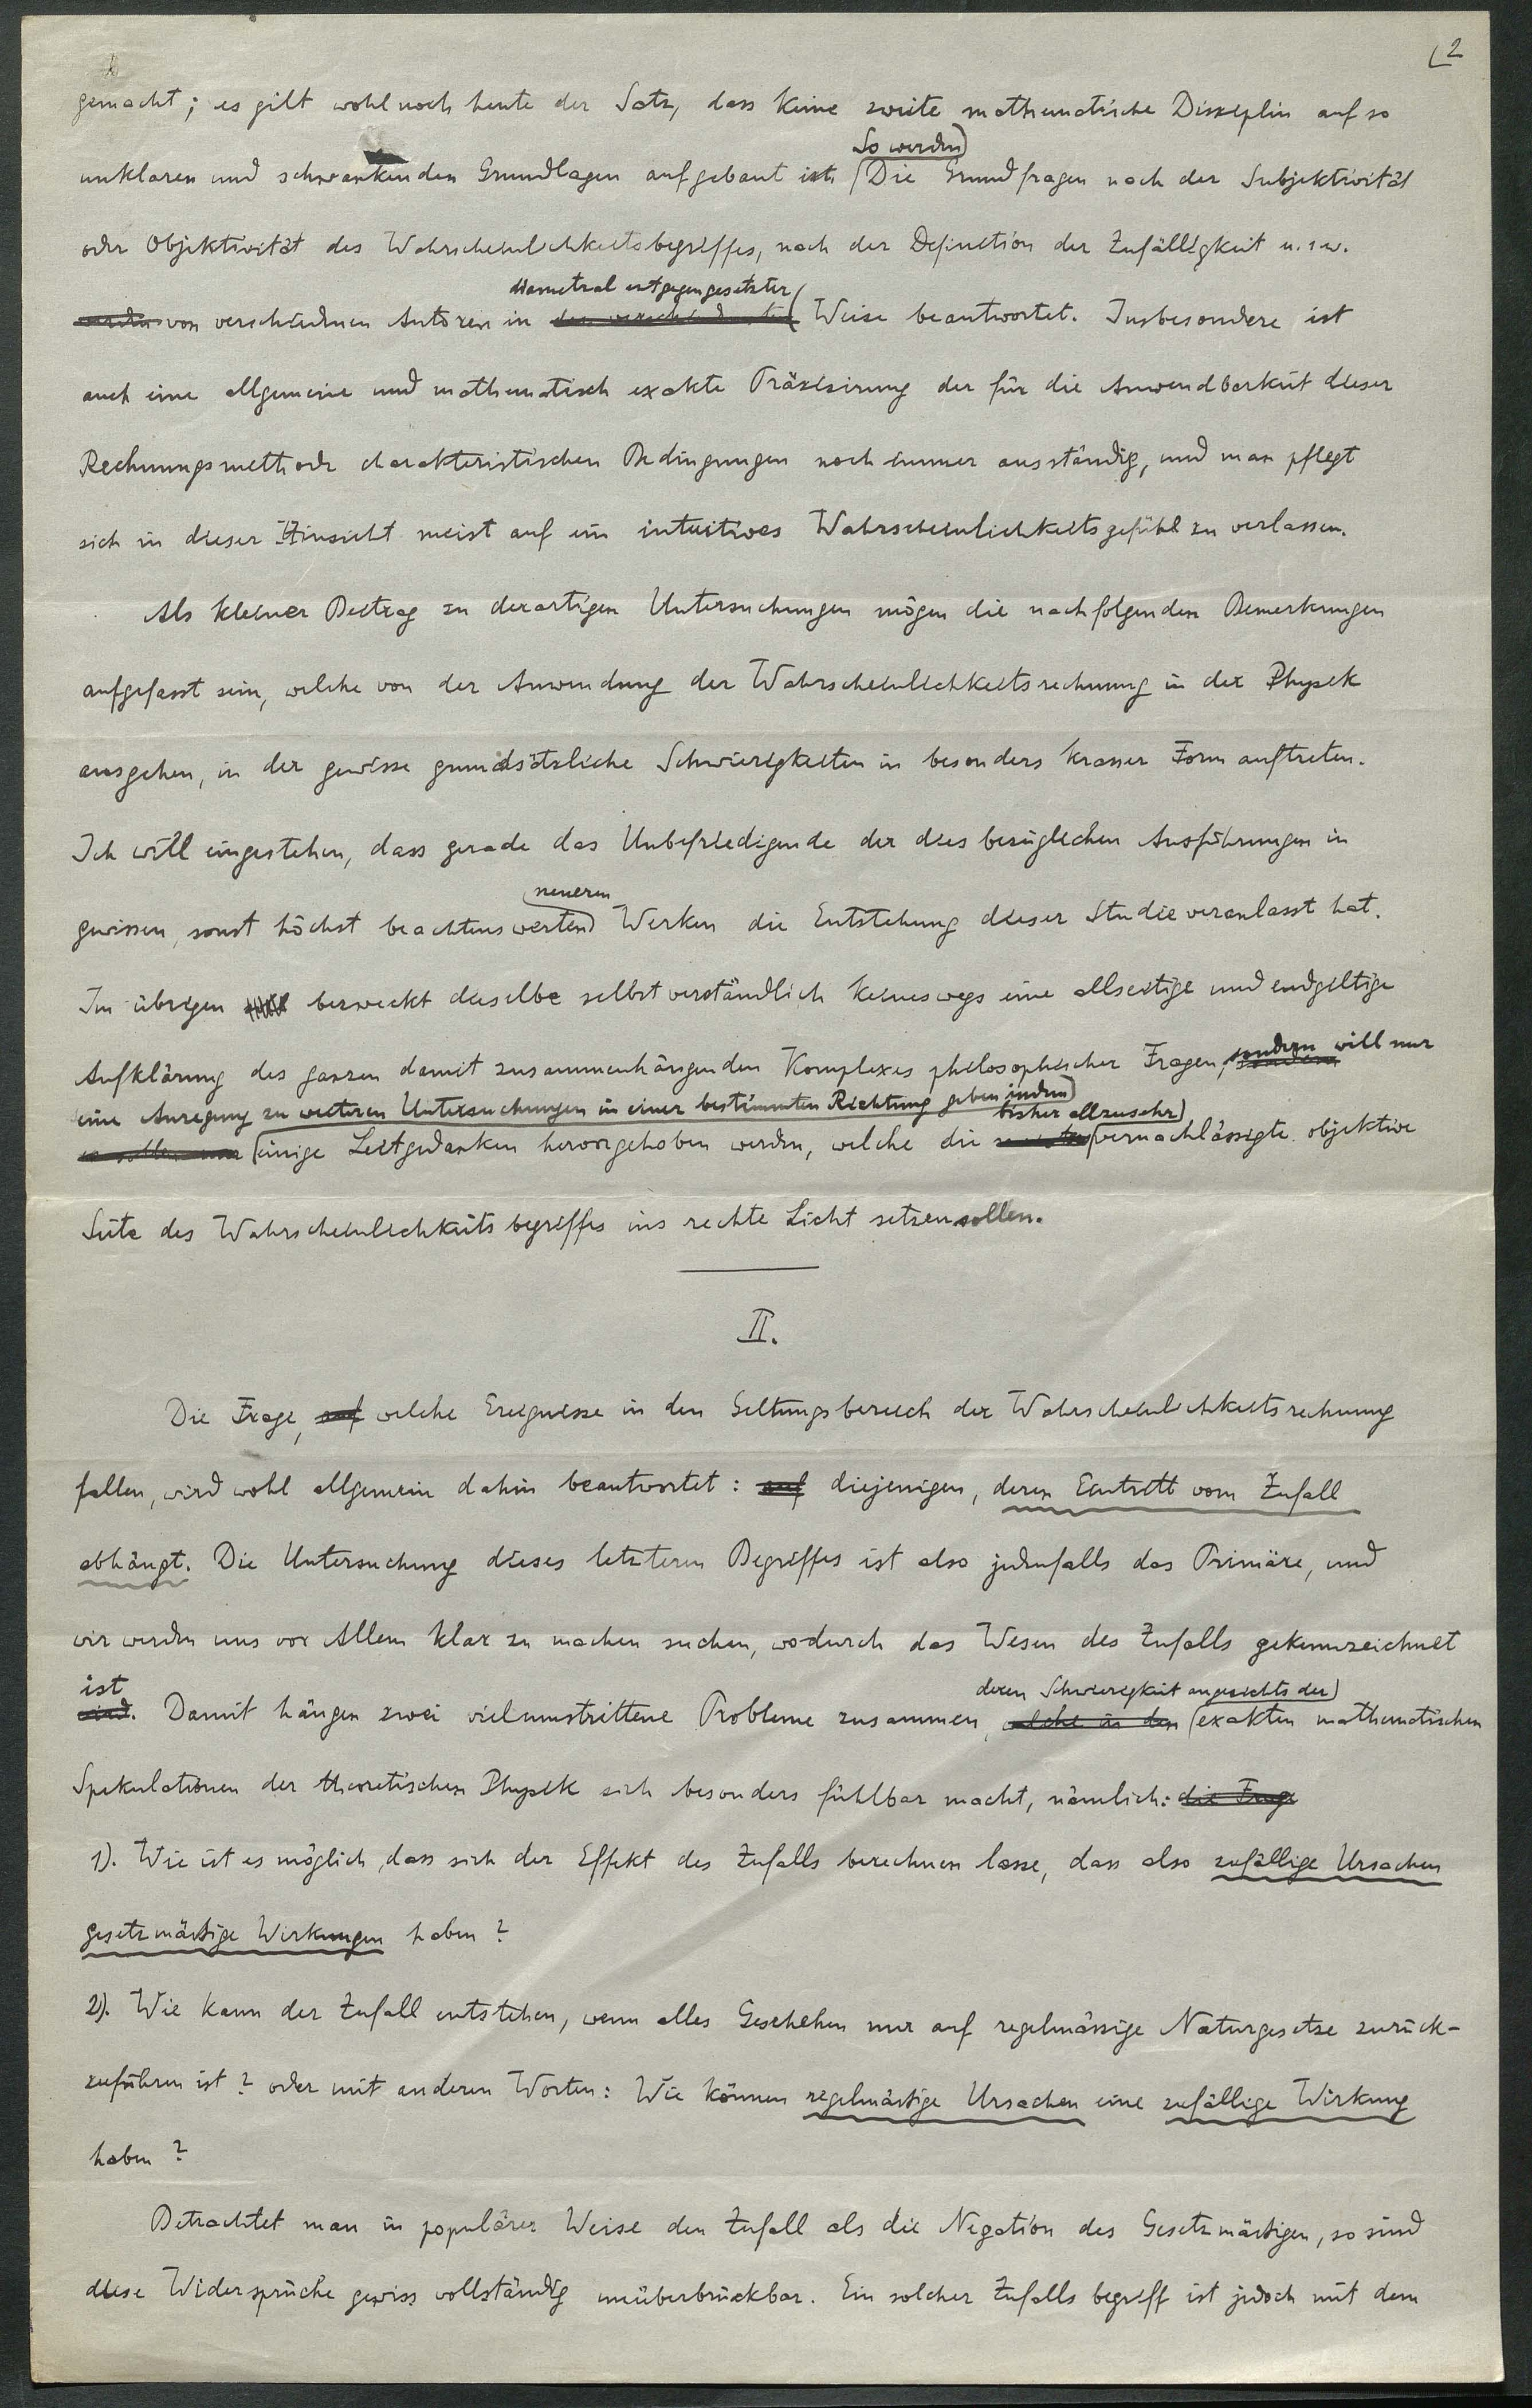 2
gemacht; es gilt wohl noch heute der Satz, dass keine zweite mathematische Disziplin auf so
So werden
unklaren und schwankenden Grundlagen aufgebaut ist. Die Grundfragen nach der Subjektivität
oder Objektivität des Wahrscheinlichkeitsbegriffes, nach der Definition der Zufälligkeit u.s.w.
diametral entgegengesetzter
werden von verschiedenen Autoren in Weise beantwortet. Insbesondere ist
auch eine allgemeine und mathematisch exakte Präzisirung der für die Anwendbarkeit dieser
Rechnungsmethode charakteristischen Bedingungen noch immer ausständig, und man pflegt
sich in dieser Hinsicht meist auf ein intuitives Wahrscheinlichkeitsgefühl zu verlassen.
Als kleiner Beitrag zu derartigen Untersuchungen mögen die nachfolgenden Bemerkungen
aufgefasst sein, welche von der Anwendung der Wahrscheinlichkeitsrechnung in der Physik
ausgehen, in der gewisse grundsätzliche Schwierigkeiten in besonders krasser Form auftreten.
Ich will eingestehen, dass gerade das Unbefriedigende der diesbezüglichen Ausführungen in
neueren
gewissen, sonst höchst beachtenswerten Werken die Entstehung dieser Studie veranlasst hat.
Im übrigen bezweckt dieselbe selbstverständlich keineswegs eine allseitige und endgiltige
Aufklärung des ganzen damit zusammenhängenden Komplexes philosophischer Fragen, sondern will nur
eine Anregung zu weiteren Untersuchungen in einer bestimmten Richtung geben indem
bisher allzusehr
es sollen nur einige Leitgedanken hervorgehoben werden, welche die vernachlässigte objektive
Seite des Wahrscheinlichkeitsbegriffes ins rechte Licht setzen sollen.
II.
Die Frage, auf welche Ereignisse in den Geltungsbereich der Wahrscheinlichkeitsrechnung
fallen, wird wohl allgemein dahin beantwortet: auf diejenigen, deren Eintritt vom Zufall
abhängt. Die Untersuchung dieses letzteren Begriffes ist also jedenfalls das Primäre, und
wir werden uns vor Allem klar zu machen suchen, wodurch das Wesen des Zufalls gekennzeichnet
ist
deren Schwierigkeit angesichts der
wird. Damit hängen zwei vielumstrittene Probleme zusammen, welche in den exakten mathematischen
Spekulationen der theoretischen Physik sich besonders fühlbar macht, nämlich: die Frage
1). Wie ist es möglich, dass sich der Effekt des Zufalls berechnen lasse, dass also zufällige Ursachen
gesetzmässige Wirkungen haben?
2). Wie kann der Zufall entstehen, wenn alles Geschehen nur auf regelmässige Naturgesetze zurück-
zuführen ist? oder mit anderen Worten: Wie können regelmässige Ursachen eine zufällige Wirkung
haben?
Betrachtet man in populärer Weise den Zufall als die Negation des Gesetzmässigen, so sind
diese Widersprüche gewiss vollständig unüberbrückbar. Ein solcher Zufallsbegriff ist jedoch mit dem